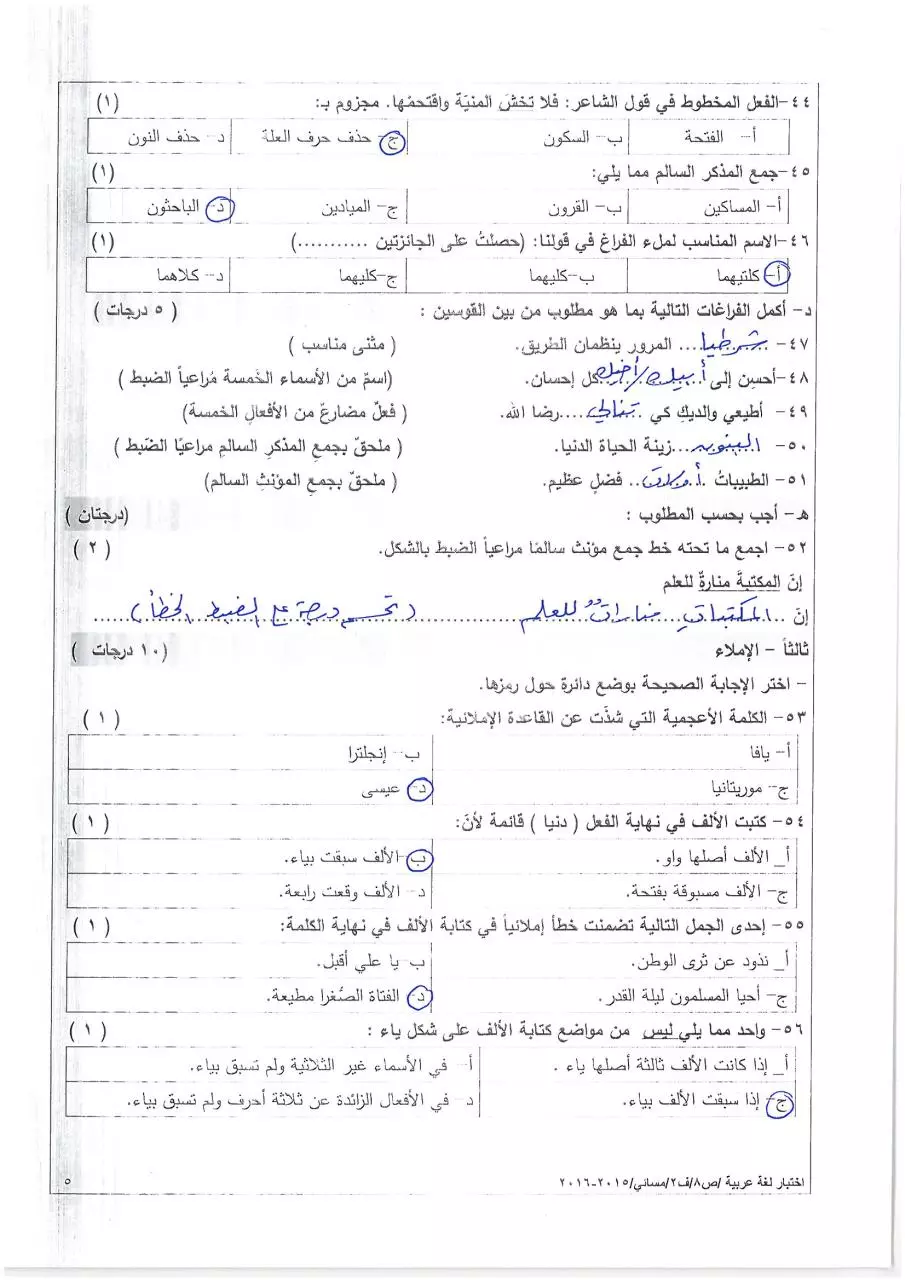 ٤٤-الفعل المخطوط في قول الشاعر: فلا تخشَ المنيّة واقتحمْها. مجزوم بـ: (١)
أ- الفتحة ب- السكون ج- حذف حرف العلة د- حذف النون
٤٥-جمع المذكر السالم مما يلي: (١)
أ- المساكين ب- القرون ج- الميادين د- الباحثون
٤٦-الاسم المناسب لملء الفراغ في قولنا: (حصلتُ على الجائزتين ...........) (١)
أ- كلتيهما ب-كليهما ج-كليهما د- كلاهما
د- أكمل الفراغات التالية بما هو مطلوب من بين القوسين : ( ٥ درجات )
٤٧- شرطيا.... المرور ينظمان الطريق. ( مثنى مناسب )
٤٨-أحسِن إلى أبيك/أخيك كل إحسان. (اسمٌ من الأسماء الخمسة مُراعياً الضبط )
٤٩- أطيعي والديكِ كي .تنالي....رضا الله. ( فعلٌ مضارعٌ من الأفعال الخمسة)
٥٠- البنون...زينة الحياة الدنيا. ( ملحقٌ بجمع المذكر السالم مراعيًا الضّبط )
٥١- الطبيباتُ .أولات.. فضلٍ عظيم. ( ملحقٌ بجمع المؤنثِ السالم)
هـ- أجب بحسب المطلوب : (درجتان )
٥٢- اجمع ما تحته خط جمع مؤنث سالمًا مراعياً الضبط بالشكل. ( ٢ )
إنّ المكتبةَ منارةٌ للعلم
إنّ ..المكتباتِ مناراتٌ للعلم (تحسم درجة على الضبط الخطأ)
ثالثاً - الإملاء (١٠ درجات )
- اختر الإجابة الصحيحة بوضع دائرة حول رمزها.
٥٣- الكلمة الأعجمية التي شذّت عن القاعدة الإملائية: ( ١ )
أ- يافا ب- إنجلترا
ج- موريتانيا د- عيسى
٥٤- كتبت الألف في نهاية الفعل ( دنيا ) قائمة لأنّ: ( ١ )
أ_ الألف أصلها واو. ب-الألف سبقت بياء.
ج- الألف مسبوقة بفتحة. د- الألف وقعت رابعة.
٥٥- إحدى الجمل التالية تضمنت خطأ إملائياً في كتابة الألف في نهاية الكلمة: ( ١ )
أ_ نذود عن ثرى الوطن. ب- يا علي أقبل.
ج- أحيا المسلمون ليلة القدر. د- الفتاة الصّغرا مطيعة.
٥٦- واحد مما يلي ليس من مواضع كتابة الألف على شكل ياء : ( ١ )
أ_ إذا كانت الألف ثالثة أصلها ياء . أ- في الأسماء غير الثلاثية ولم تسبق بياء.
ج- إذا سبقت الألف بياء. د- في الأفعال الزائدة عن ثلاثة أحرف ولم تسبق بياء.
اختبار لغة عربية /ص٨/ف٢/مسائي/٢٠١٥-٢٠١٦ ٥